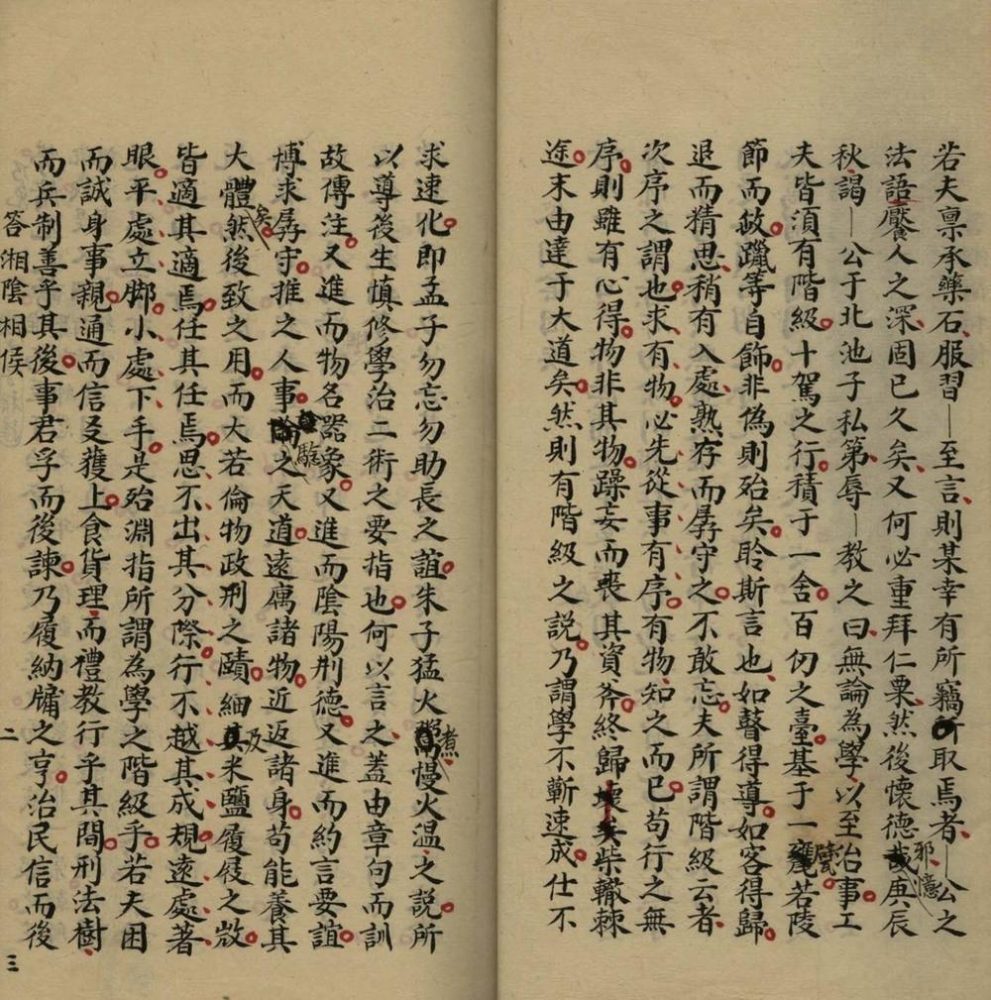 若夫禀承藥石服習—至言則某幸有所竊取焉者—公之
法語饜人之深固已久矣又何必重拜仁粟然後懷德邪憶庚辰
秋謁—公于北池子私第辱—教之曰無論為學以至治事工
夫皆須有階級十駕之行積于一舍百仞之臺基于一甓若陵
節而敚躐等自飾非偽則殆矣聆斯言也如瞽得導如客得歸
退而精思稍有入處熟存而孱守之不敢忘夫所謂階級云者
次序之謂也求有物必先從事有序有物知之而已苟行之無
序則雖有心得物非其物躁妄而喪其資斧終歸柴轍棘
途末由達于大道矣然則有階級之説乃謂學不蘄速成仕不
求速化即孟子勿忘勿助長之誼朱子猛火煮慢火温之説所
以導後生慎修學治二術之要指也何以言之蓋由章句而訓
故傳注又進而物名器象又進而陰陽刑德又進而約言要誼
博求孱守推之人事驗之天道遠寓諸物近返諸身苟能養其
大體矣然後致之用而大若倫物政刑之賾細及米鹽履屐之
皆適其適焉任其任焉思不出其分際行不越其成規遠處著
眼平處立腳小處下手是殆淵指所謂為學之階級乎若夫困
而誠身事親通而信友獲上食貨理而禮教行乎其間刑法樹
而兵制善乎其後事君孚而後諫乃履納牖之亨治民信而後
答湘陰相侯
二
三